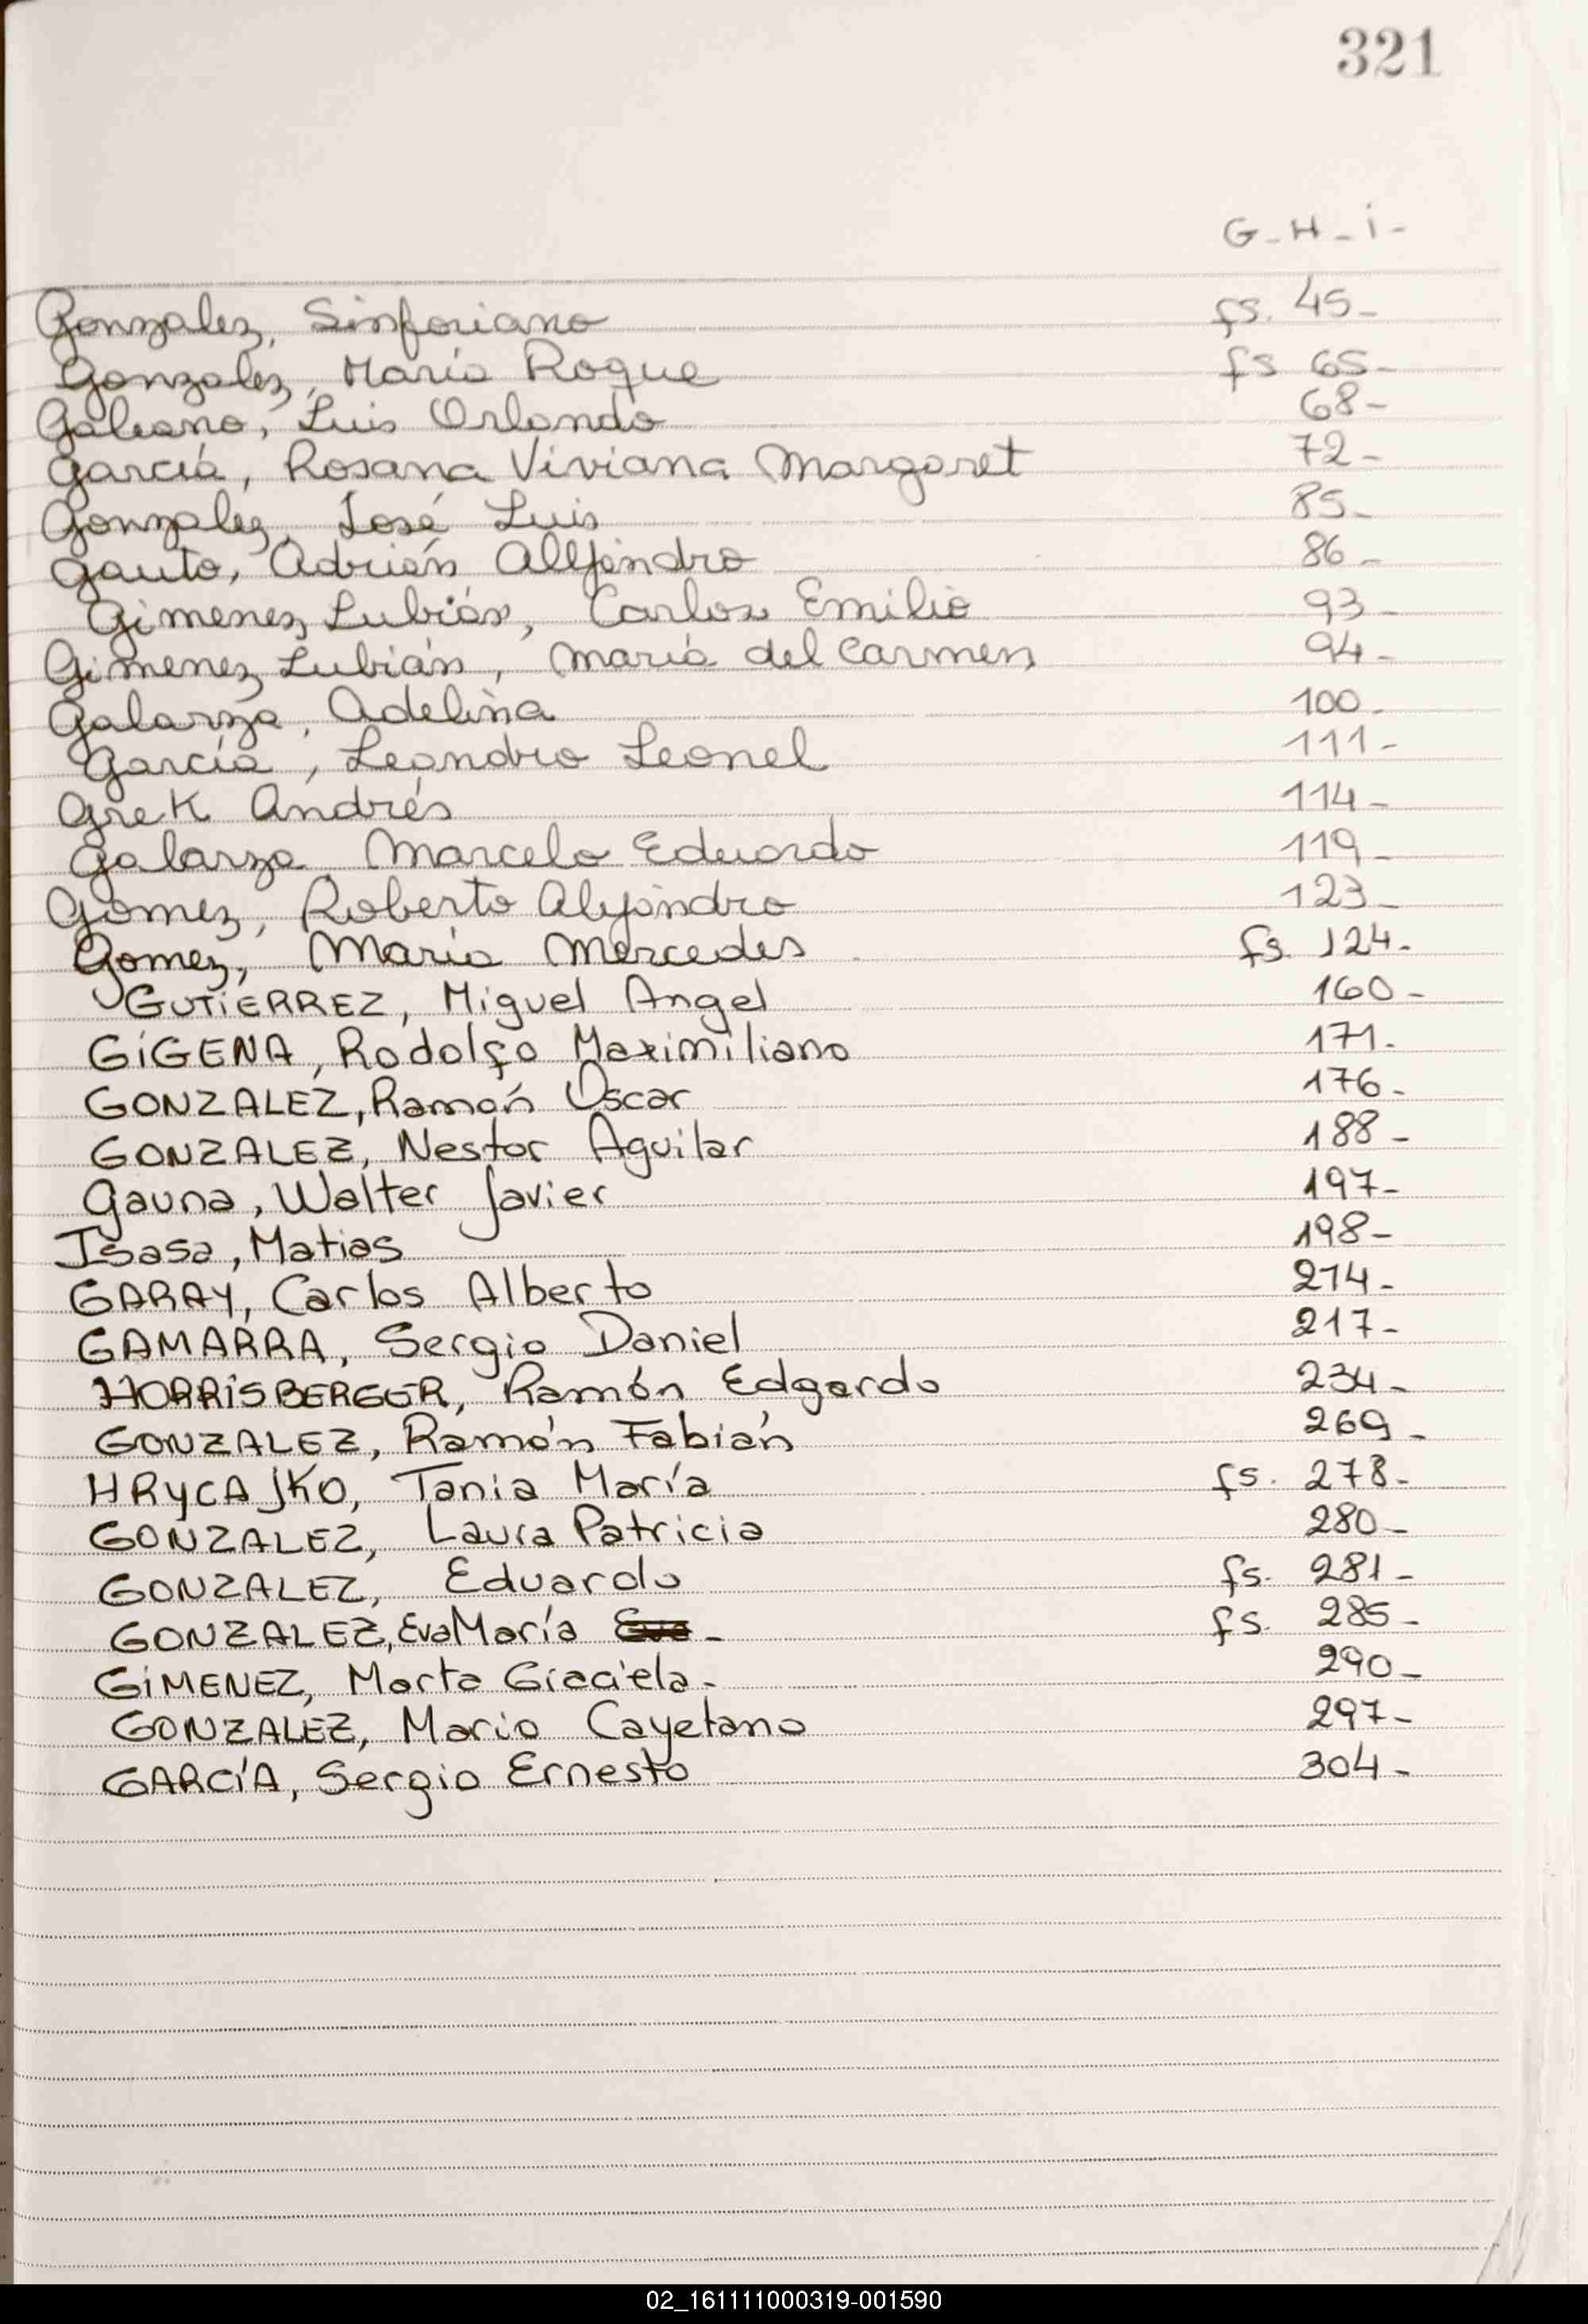 321
G-H-i-
Gonzalez, Sinforiano fs. 45-
Gonzalez, María Roque fs 65-
Galeano, Luis Orlando 68-
García, Rosana Viviana Margaret 72-
Gonzalez, José Luis 85-
Gauto, Adrián Alejandro 86-
Gimenez Lubián, Carlos Emilio 93-
Gimenez Lubián, María del Carmen 94-
Galarza, Adelina 100-
García, Leandro Leonel 111-
Grek Andrés 114-
Galarza Marcelo Eduardo 119-
Gomez, Roberto Alejandro 123-
Gomez, María Mercedes fs. 124-
GUTiERREZ, Miguel Angel 160-
GiGENA, Rodolfo Maximiliano 171-
GONZALEZ, Ramón Oscar 176-
GONZALEZ, Nestor Aguilar 188-
Gauna, Walter Javier 197-
Isasa, Matias 198-
GARAY, Carlos Alberto 214-
GAMARRA, Sergio Daniel 217-
HORRiSBERGER, Ramón Edgardo 234-
GONZALEZ, Ramón Fabián 269-
HRyCAjKO, Tania María fs. 278-
GONZALEZ, Laura Patricia 280-
GONZALEZ, Eduardo fs. 281-
GONZALEZ, Eva María Eva- fs. 285-
GiMENEZ, Marta Graciela- 290-
GONZALEZ, Mario Cayetano 297-
GARCíA, Sergio Ernesto 304-
02_161111000319-001590